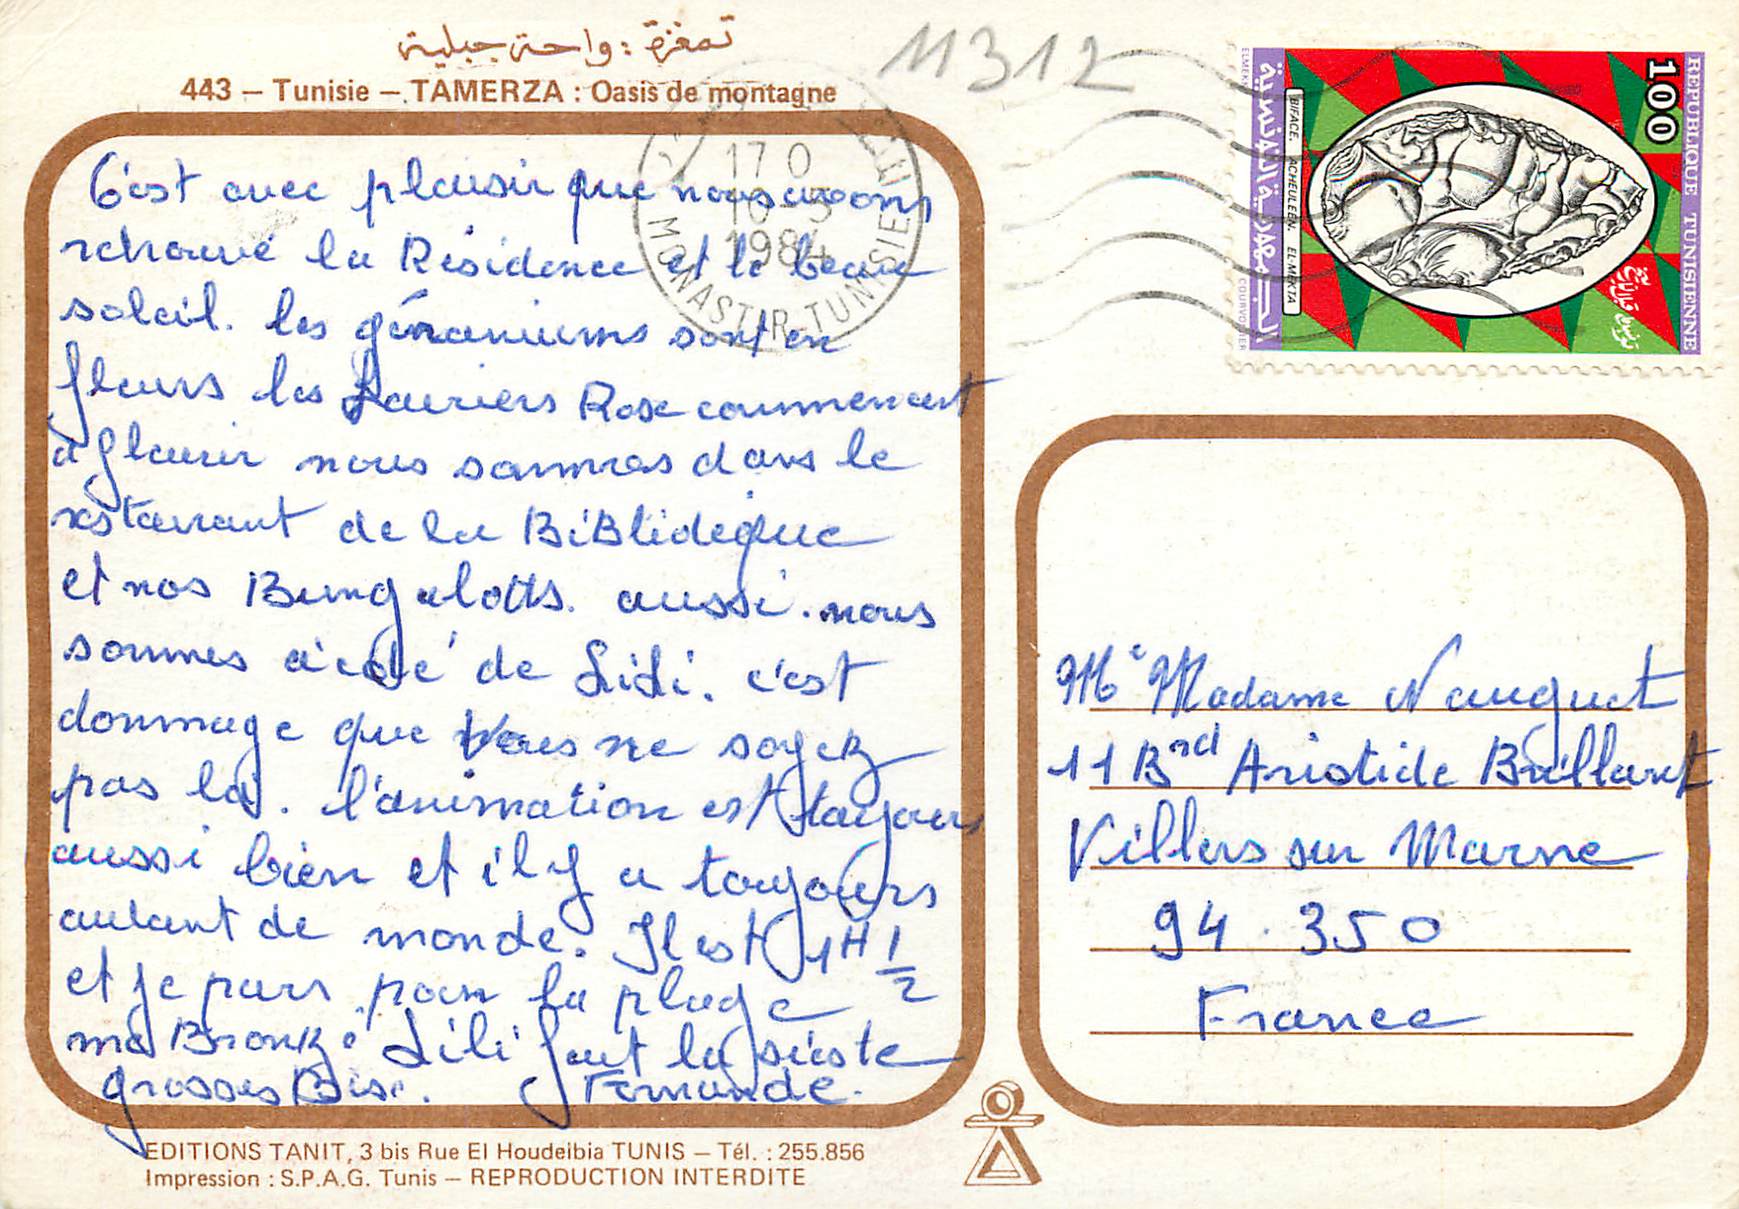 تمغزة : واحة جبلية
443 — Tunisie — TAMERZA : Oasis de montagne
11312
C'est avec plaisir que nous avons
retrouvé la Résidence et le beau
soleil. les géraniums sont en
fleurs les Lauriers Rose commencent
à fleurir nous sommes dans le
restaurant de la
et nos aussi. nous
sommes de LiLi. c'est
dommage que Vous ne soyez
pas là. l'animation est toujours
aussi bien et il y a toujours
autant de monde. Il est 1H 1/2
et je pars pour la plage
ma Bronzé Lili fait la sieste
grosses Bises. Fernande.
17 0
10-5
1984
MONASTIR-TUNISIE
REPUBLIQUE TUNISIENNE
100
BIFACE. ACHEULEEN. EL-MEKTA
الجمهورية التونسية
ELMEKKI
COURVOISIER
Mr Madame Nauguet
11 Brd Aristide Brillant
Villers sur Marne
94.350
France
EDITIONS TANIT, 3 bis Rue El Houdeibia TUNIS — Tél. : 255.856
Impression : S.P.A.G. Tunis — REPRODUCTION INTERDITE